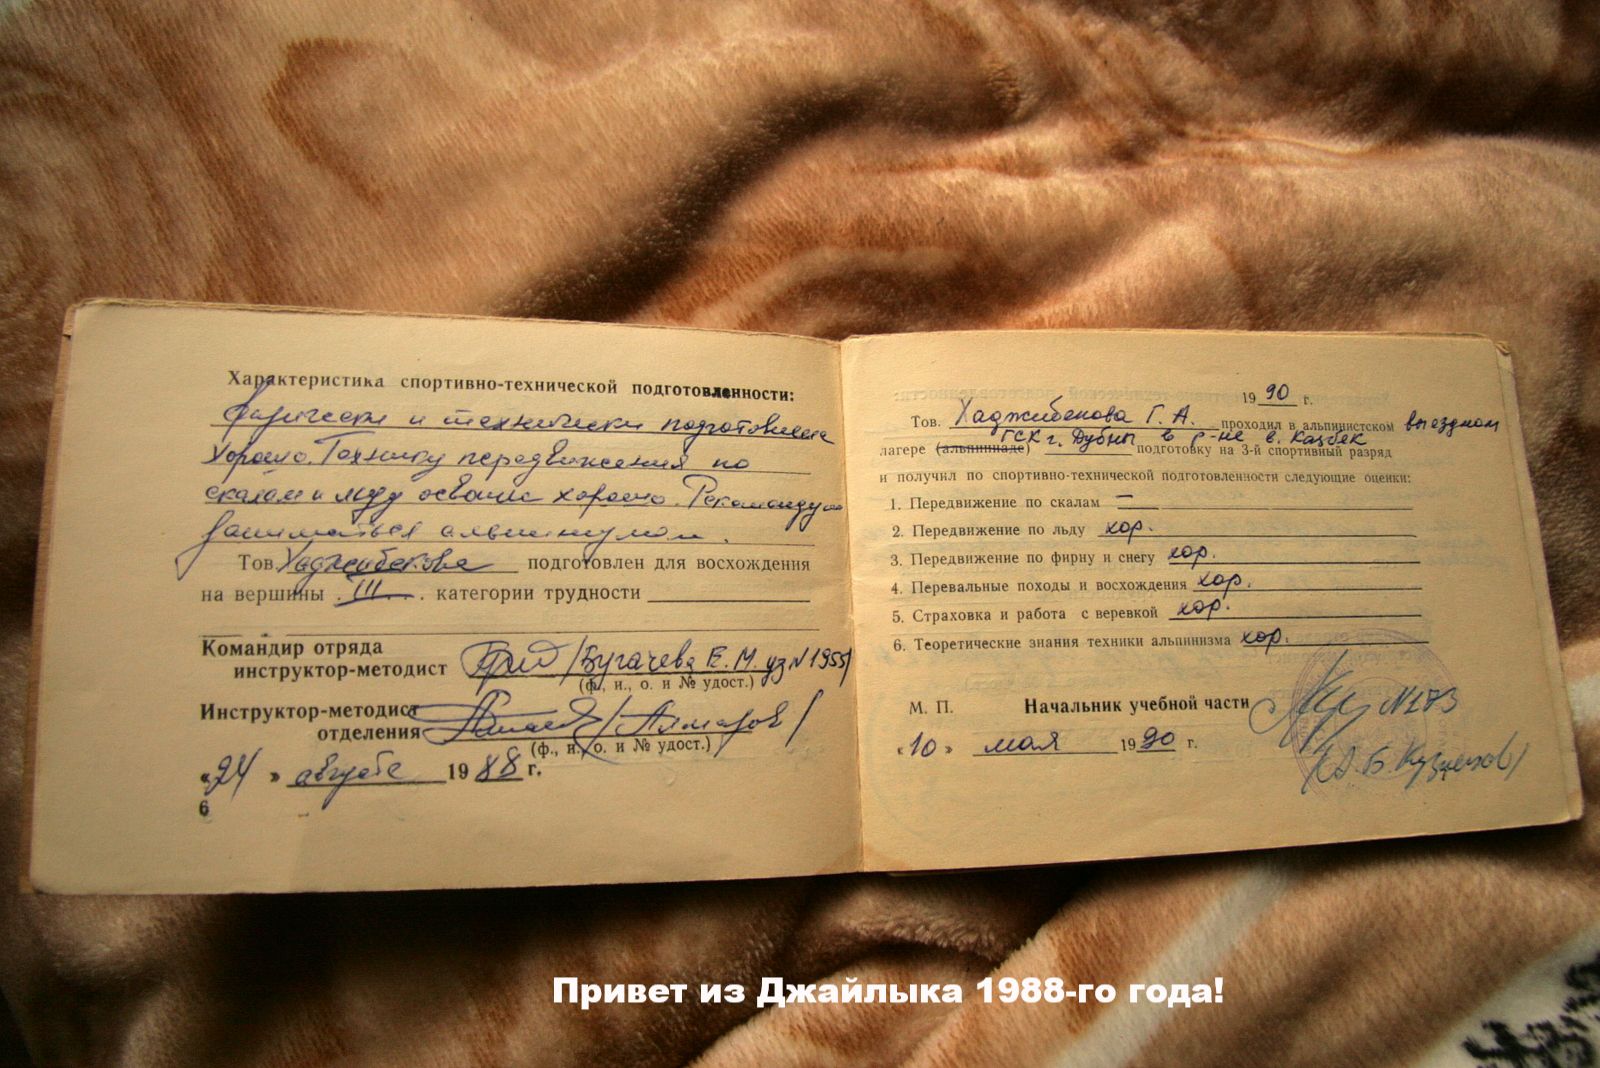 Характеристика спортивно-технической подготовленности:
Физически и технически подготовлена
хорошо. Технику передвижения по
скалам и льду освоила хорошо. Рекомендую
заниматься альпинизмом.
Тов. Хаджибекова подготовлен для восхождения
на вершины III категории трудности
Командир отряда
инструктор-методист /Бугачева Е. М. уд N 1955/
(ф., и., о. и № удост.)
Инструктор-методист
отделения
(ф., и., о. и № удост.)
«24» августа 1988 г.
6
1990 г.
Тов. Хаджибекова Г. А. проходил в альпинистском выездном
ГСК г. Дубны в р-не в. Казбек
лагере (альпиниаде) подготовку на 3-й спортивный разряд
и получил по спортивно-технической подготовленности следующие оценки:
1. Передвижение по скалам —
2. Передвижение по льду хор.
3. Передвижение по фирну и снегу хор.
4. Перевальные походы и восхождения хор.
5. Страховка и работа с веревкой хор.
6. Теоретические знания техники альпинизма хор.
М. П. Начальник учебной части N273
«10» мая 1990 г.
Привет из Джайлыка 1988-го года!